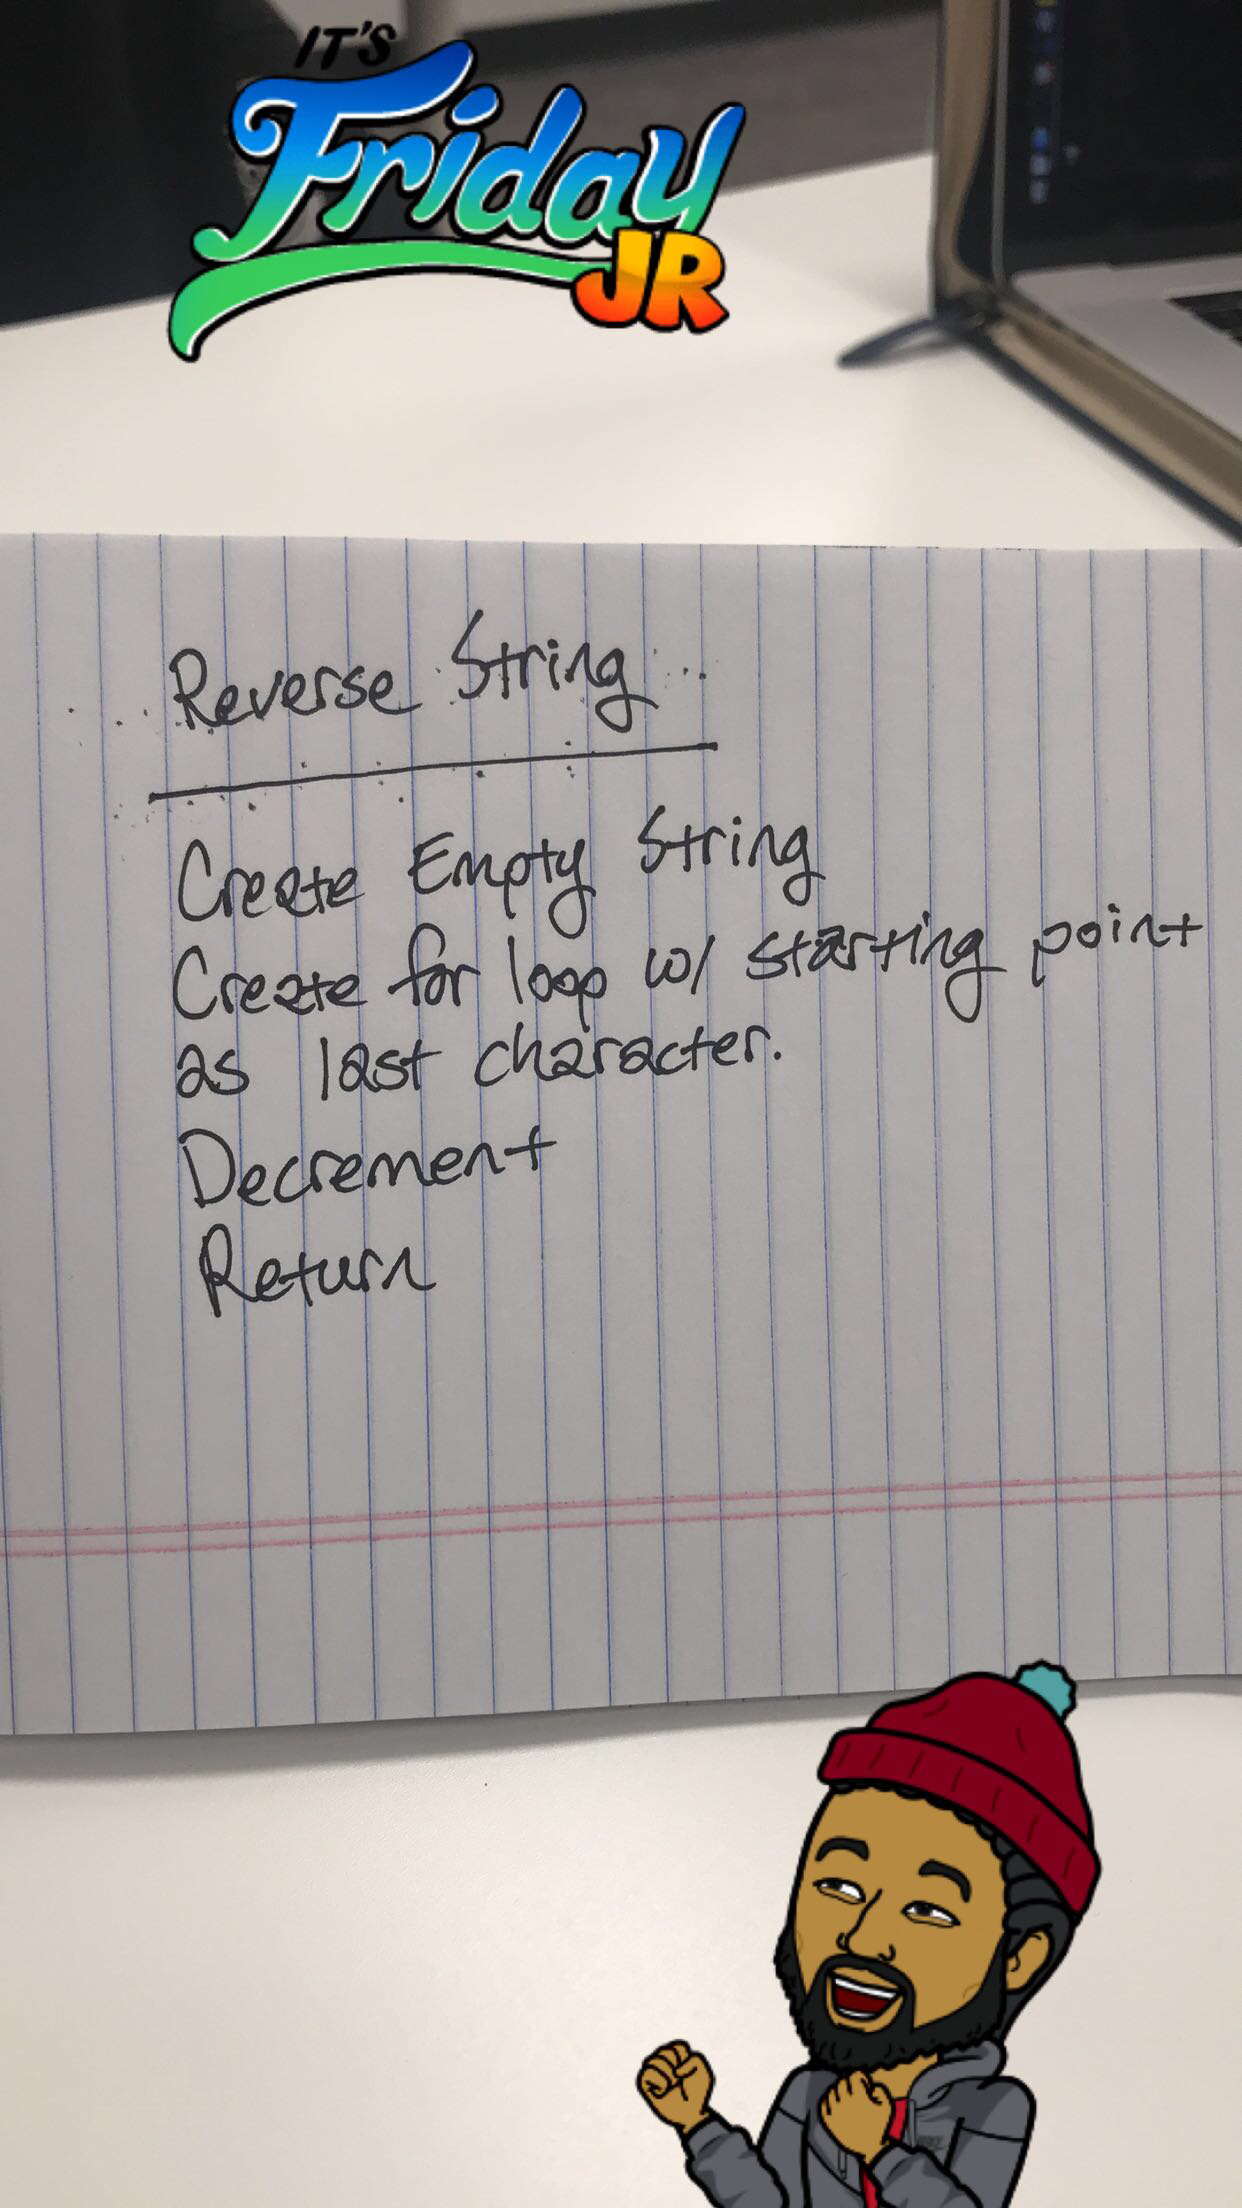 IT'S
Friday
JR
Reverse String
Create Empty String
Create for loop w/ starting point
as last character.
Decrement
Return